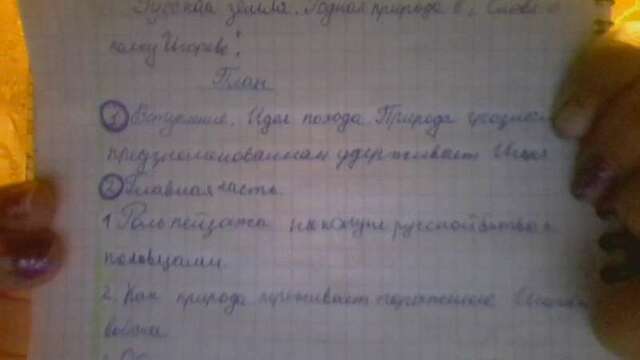 Русская земля. Родная природа в „Слове о
полку Игореве".
План
① Вступление. Идея похода. Природа грозным
предзнаменованием удерживает Игоря
② Главная часть.
1. Роль пейзажа накануне русской битвы с
половцами.
2. Как природа переживает поражение